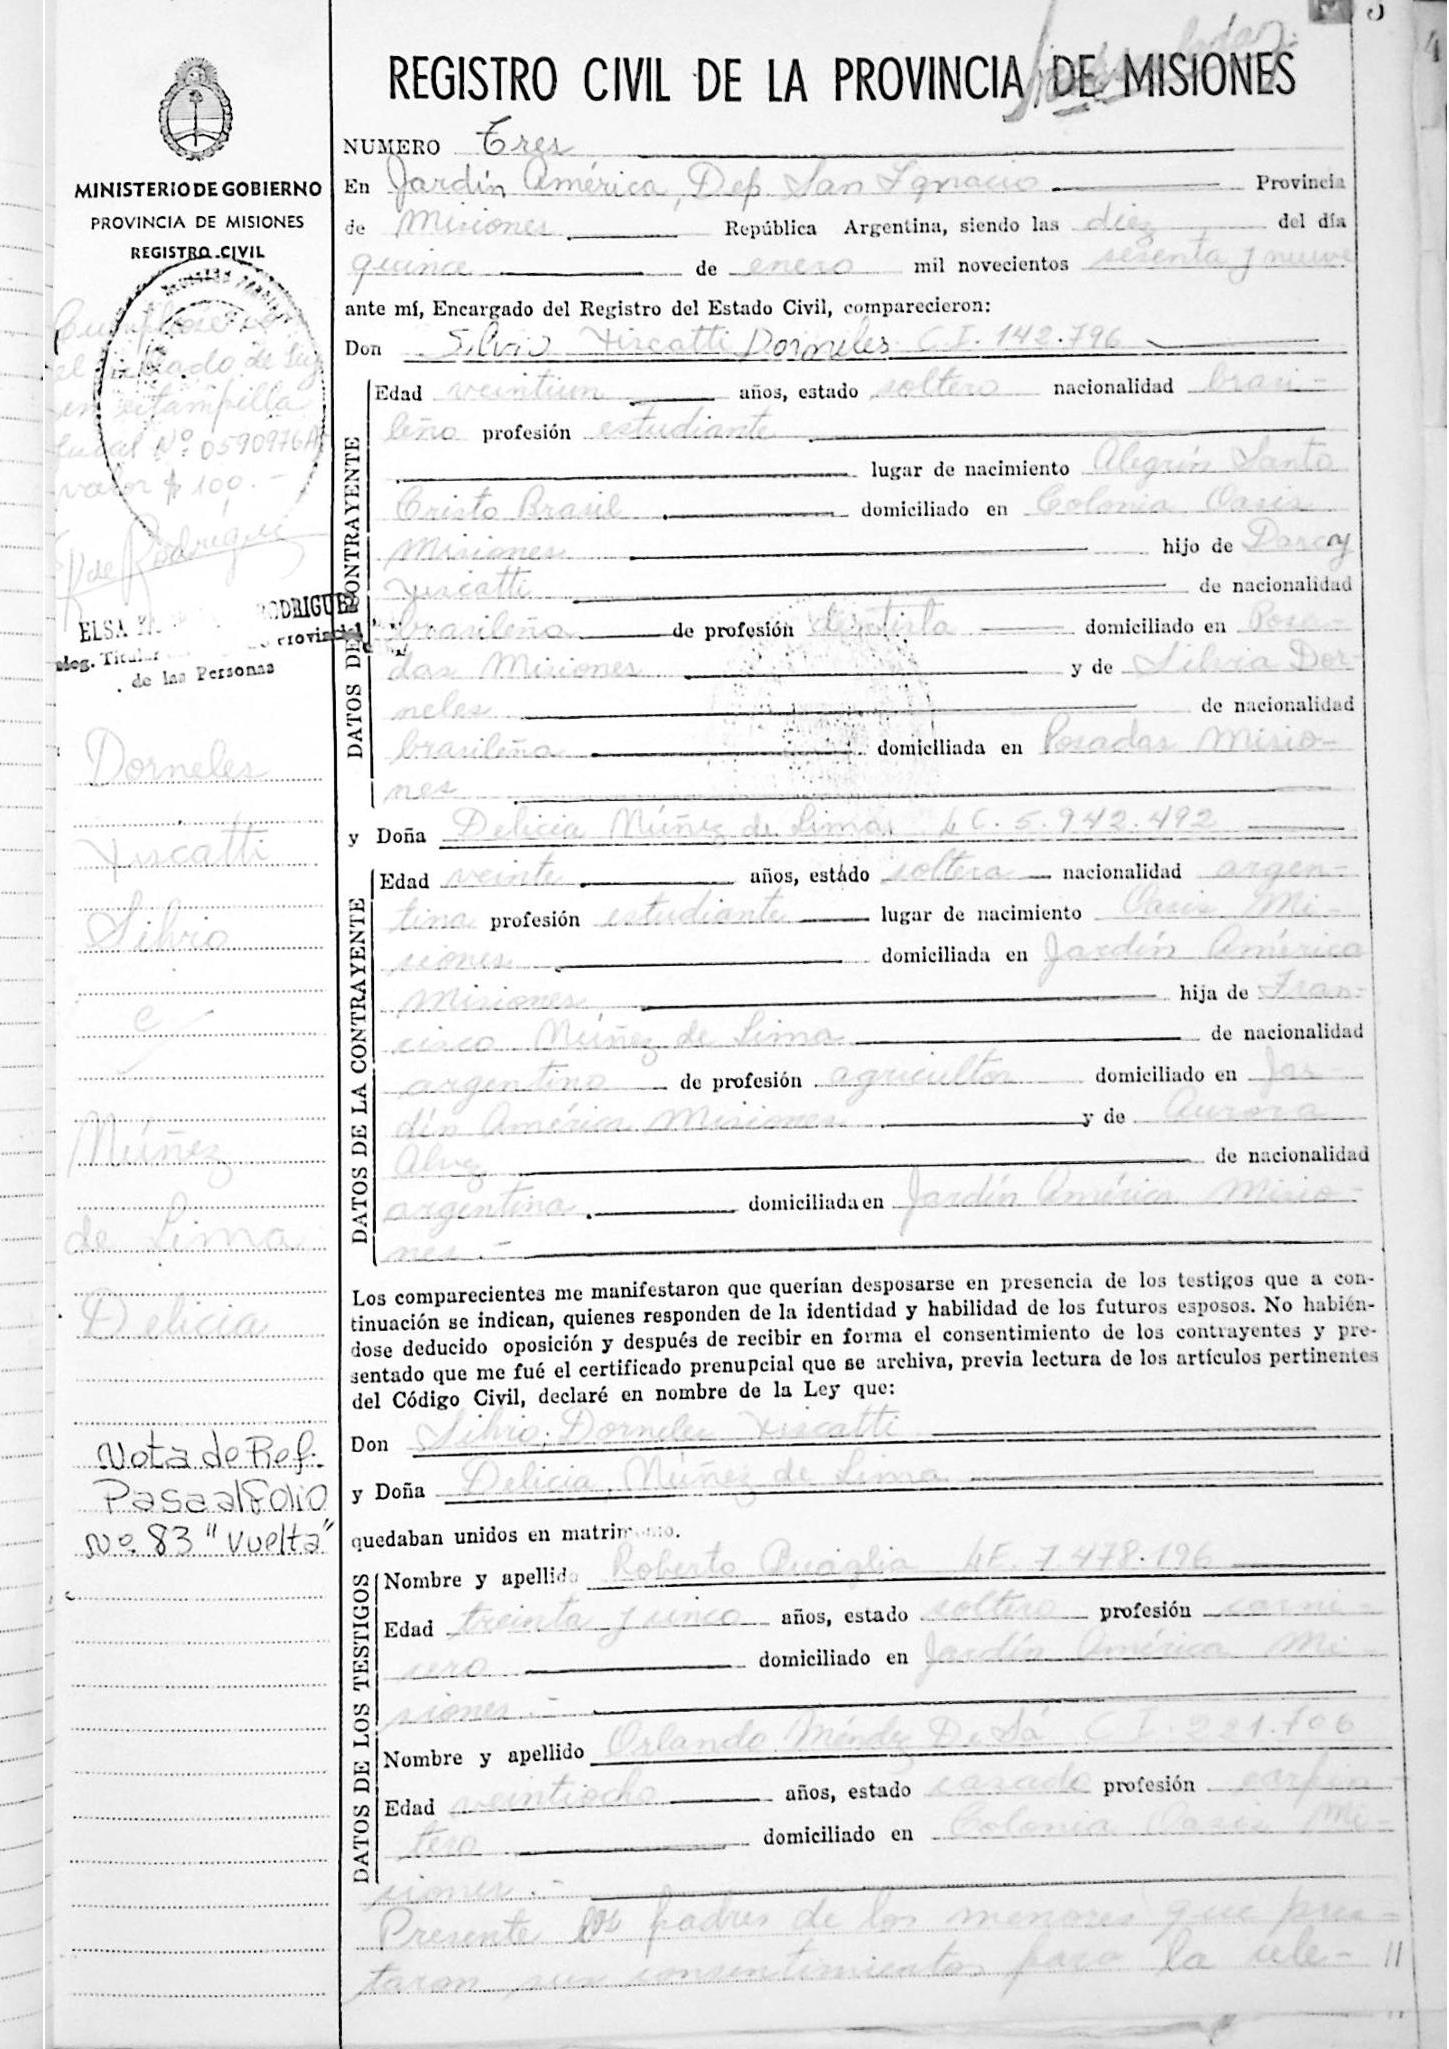 REGISTRO CIVIL DE LA PROVINCIA DE MISIONES
MINISTERIO DE GOBIERNO
PROVINCIA DE MISIONES
REGISTRO CIVIL
Cumplióse con
el sellado de Ley
en estampilla
fiscal Nº 0590976A
valor $ 100.-
Rodríguez
ELSA RODRIGUEZ
Titular Provincial
de las Personas
Dorneles
Xiscatti
Silvio
e
Núñez
de Lima
Delicia
Nota de Ref:
Pasa al folio
Nº 83 "Vuelta"
NUMERO Tres
En Jardín América, Dep. San Ignacio Provincia
de Misiones República Argentina, siendo las diez del día
quince de enero mil novecientos sesenta y nueve
ante mí, Encargado del Registro del Estado Civil, comparecieron:
Don Silvio Xiscatti Dorneles C.I. 142.796
DATOS DEL CONTRAYENTE
Edad veintiun años, estado soltero nacionalidad brasi-
leño profesión estudiante
lugar de nacimiento Alegrín Santo
Cristo Brasil domiciliado en Colonia Oasis
Misiones hijo de Darcy
Xiscatti de nacionalidad
brasileña de profesión dentista domiciliado en Posa-
das Misiones y de Silvia Dor-
neles de nacionalidad
brasileña domiciliada en Posadas Misio-
nes
y Doña Delicia Núñez de Lima L.C. 5.942.492
DATOS DE LA CONTRAYENTE
Edad veinte años, estado soltera nacionalidad argen-
tina profesión estudiante lugar de nacimiento Oasis Mi-
siones domiciliada en Jardín América
Misiones hija de Fran-
cisco Núñez de Lima de nacionalidad
argentino de profesión agricultor domiciliado en Jar-
dín América Misiones y de Aurora
Alvez de nacionalidad
argentina domiciliada en Jardín América Misio-
nes.-
Los comparecientes me manifestaron que querían desposarse en presencia de los testigos que a con-
tinuación se indican, quienes responden de la identidad y habilidad de los futuros esposos. No habién-
dose deducido oposición y después de recibir en forma el consentimiento de los contrayentes y pre-
sentado que me fué el certificado prenupcial que se archiva, previa lectura de los artículos pertinentes
del Código Civil, declaré en nombre de la Ley que:
Don Silvio Dorneles Xiscatti
y Doña Delicia Núñez de Lima
quedaban unidos en matrimonio.
DATOS DE LOS TESTIGOS
Nombre y apellido Roberto Quaglia L.E. 7.478.196
Edad treinta y cinco años, estado soltero profesión carni-
cero domiciliado en Jardín América Mi-
siones.-
Nombre y apellido Orlando Méndez De Sá C.I. 221.706
Edad veintiocho años, estado casado profesión carpin-
tero domiciliado en Colonia Oasis Mi-
siones.-
Presente los padres de los menores que pres-
taron sus consentimientos para la cele- //